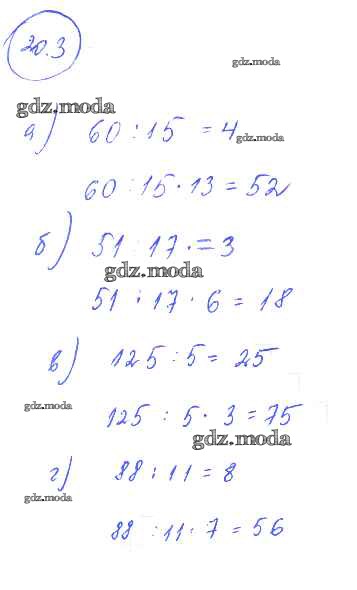 20.3
gdz.moda
gdz.moda
а) 60 : 15 = 4
gdz.moda
60 : 15 · 13 = 52
б) 51 : 17 · = 3
gdz.moda
51 : 17 · 6 = 18
в) 125 : 5 = 25
gdz.moda
125 : 5 · 3 = 75
gdz.moda
г) 88 : 11 = 8
gdz.moda
88 : 11 · 7 = 56